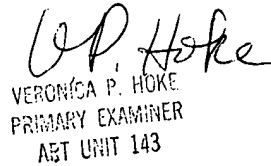 V.P. Hoke
VERONICA P. HOKE
PRIMARY EXAMINER
ART UNIT 143